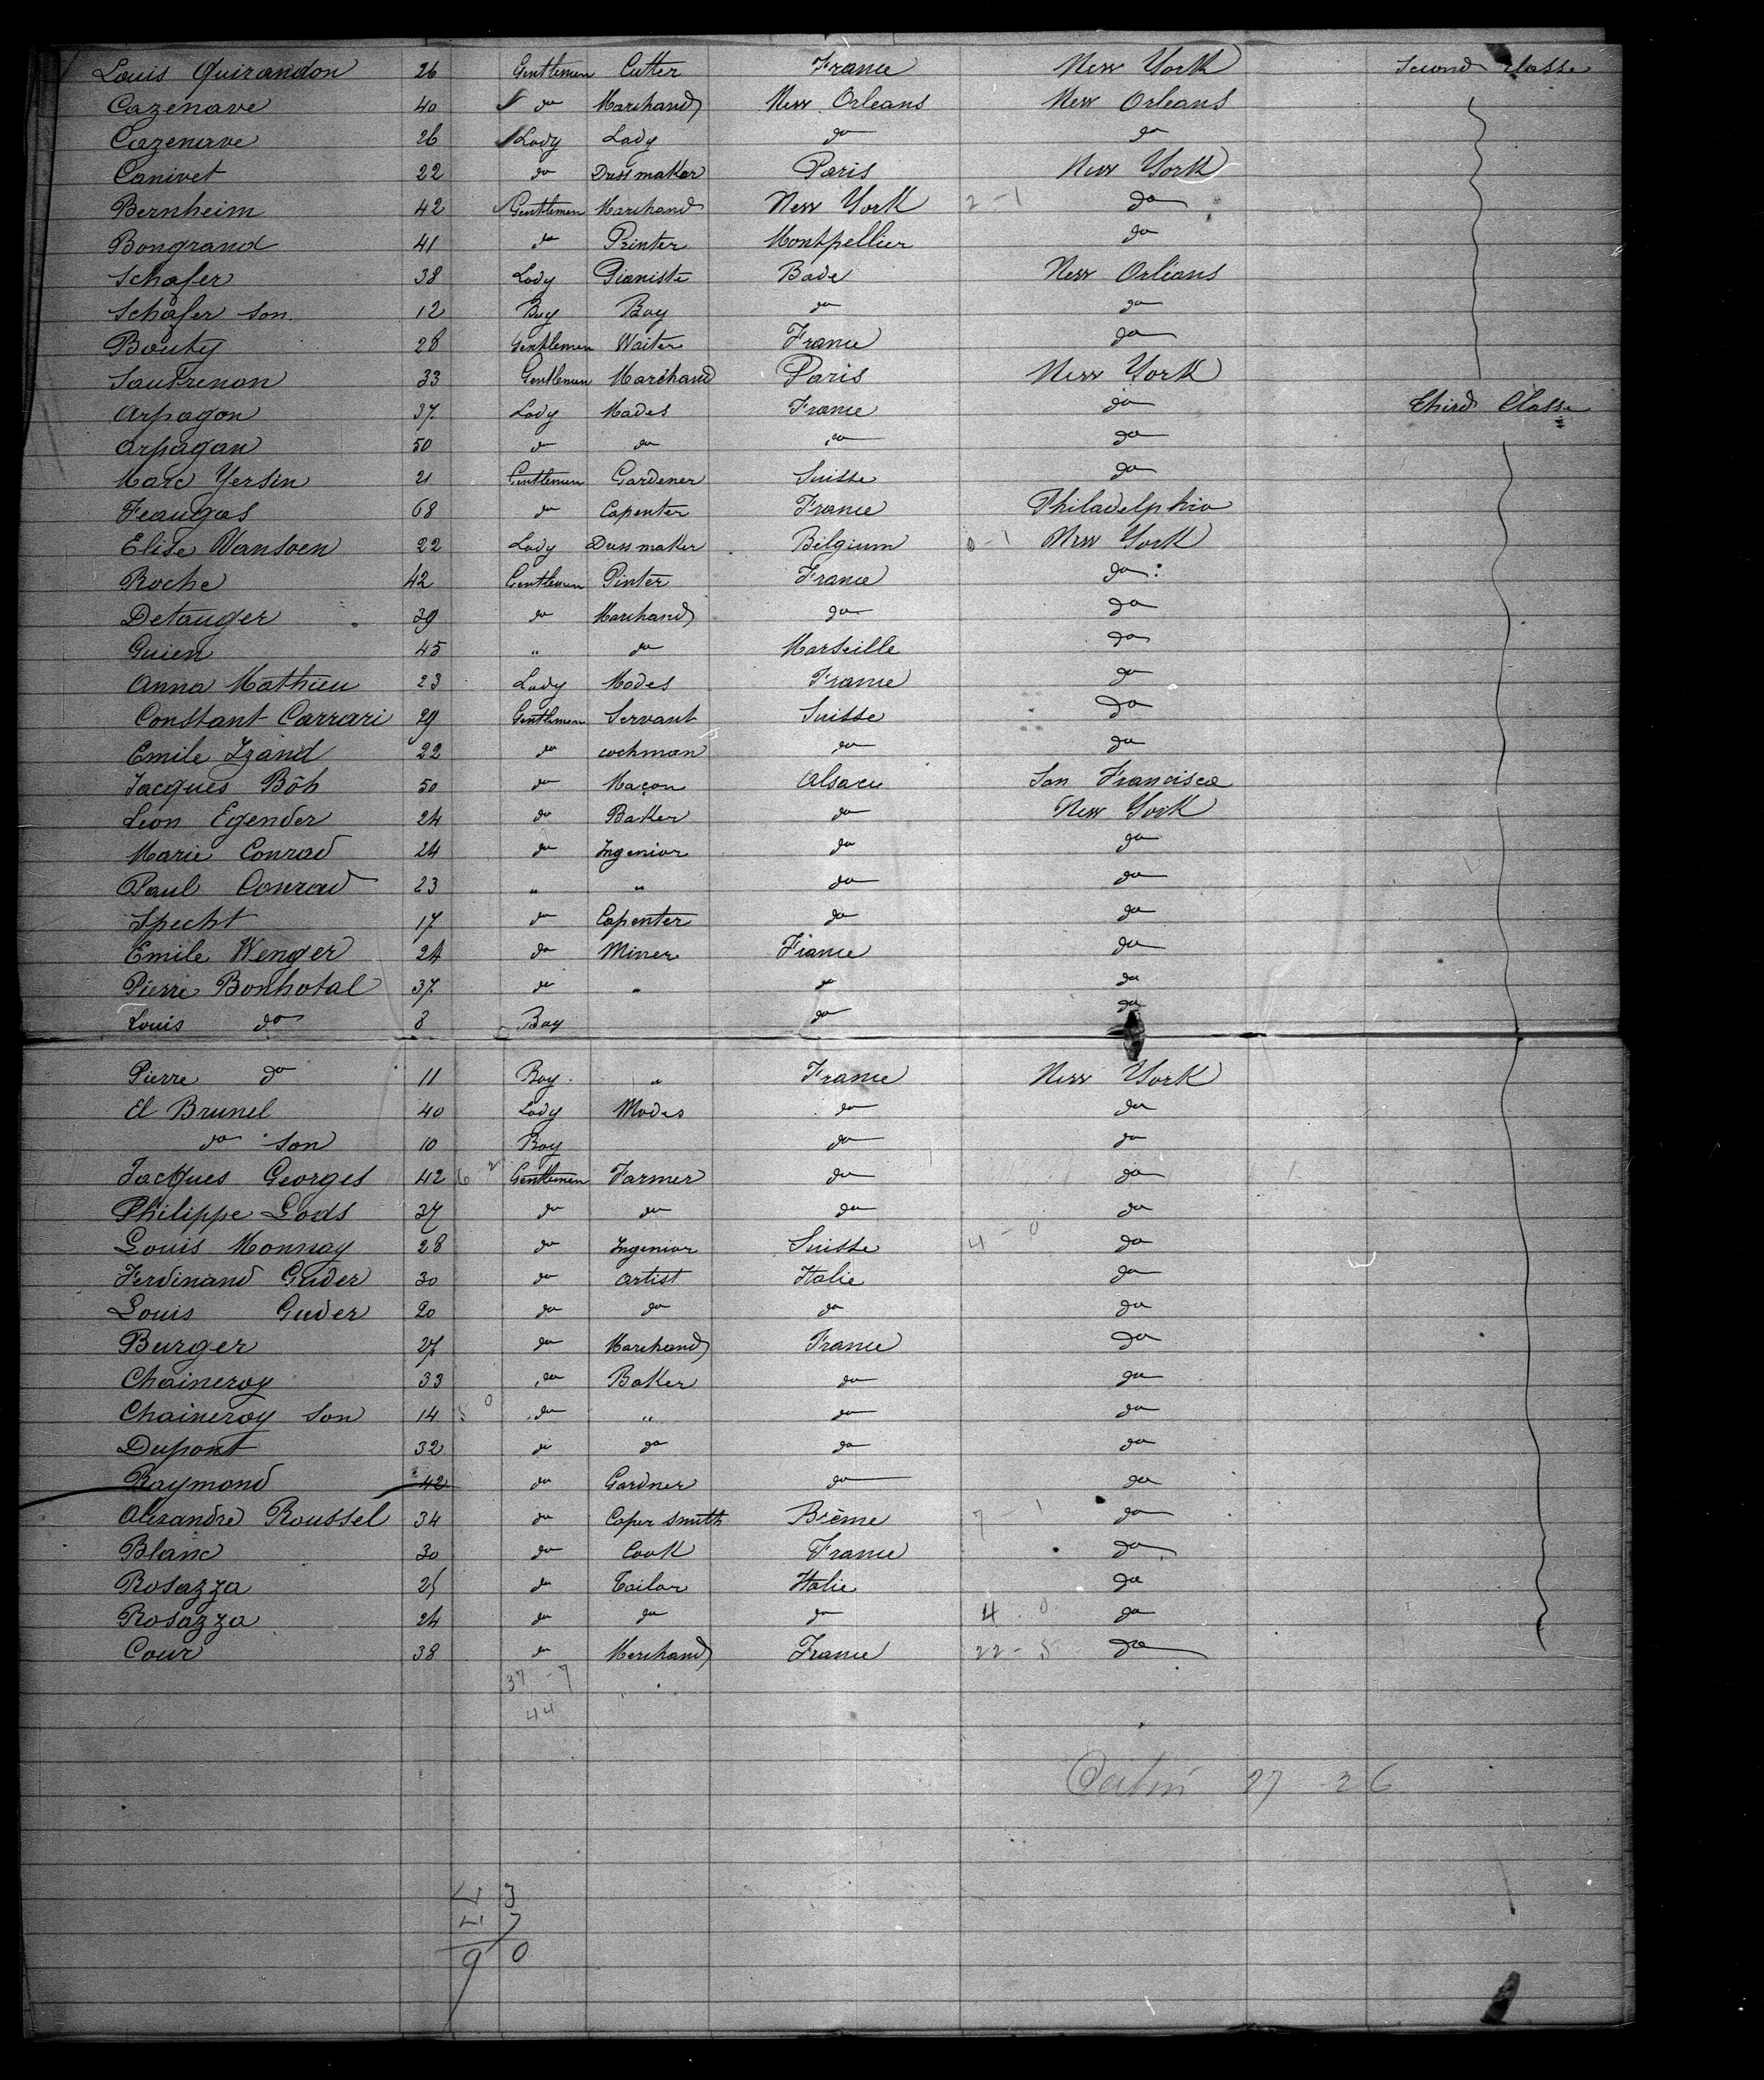 Louis Quirandon 26 Gentlemen Cutter France New York Second Classe
Cazenave 40 do Marchand New Orleans New Orleans
Cazenave 26 Lady Lady do do
Canivet 22 do Dressmaker Paris New York
Bernheim 42 Gentlemen Marchand New York 2-1 do
Bongrand 41 do Printer Montpellier do
Schafer 38 Lady Pianiste Bade New Orléans
Schafer son. 12 Boy Boy do do
Bouty 28 Gentlemen Waiter France do
33 Gentlemen Marchand Paris New York
Arpagon 37 Lady Modes France do Third Classe
Arpagan 50 do do do do
Marc Yersin 21 Gentlemen Gardener Suisse do
Feaugas 68 do Capenter France Philadelphia
Elise Vansoen 22 Lady Dressmaker Belgium 0-1 New York
Roche 42 Gentlemen Pinter France do
Detauger 39 do Marchand do do
Guien 45 " do Marseille do
Anna Mathieu 23 Lady Modes France do
Constant Carrari 29 Gentlemen Servant Suisse do
Emile Izand 22 do cochman do do
Jacques Bôh 50 do Maçon Alsace San Francisco
Leon Egender 24 do Baker do New York
Marie Conrad 24 do Ingenior do do
Paul Conrad 23 " " do do
Specht 17 do Capenter do do
Emile Wenger 24 do Miner France do
Pierre Bonhotal 37 do " do do
Louis do 8 Boy do do
Pierre do 11 Boy " France New York
El Brunel 40 Lady Modes do do
do son 10 Boy do do
Jacques Georges 42 6 2 Gentlemen Farmer do do
Philippe Lods 37 do do do do
Louis Monnay 28 do Ingenior Suisse 4-0 do
Ferdinand Guder 30 do Artist Italie do
Louis Guder 20 do do do do
Burger 27 do Marchand France do
Chaineroy 33 do Baker do do
Chaineroy son 14 5 0 do " do do
Dupont 32 do do do do
Raymond 42 do Gardner do do
Alexandre Roussel 34 do Coper smith Brème 7-1 do
Blanc 30 do Cook France do
Rosazza 25 do Tailor Italie do
Rosazza 24 do do do 4 0 do
Cour 38 do Merchand France 22-5 do
37-7
44
27 26
43
47
90